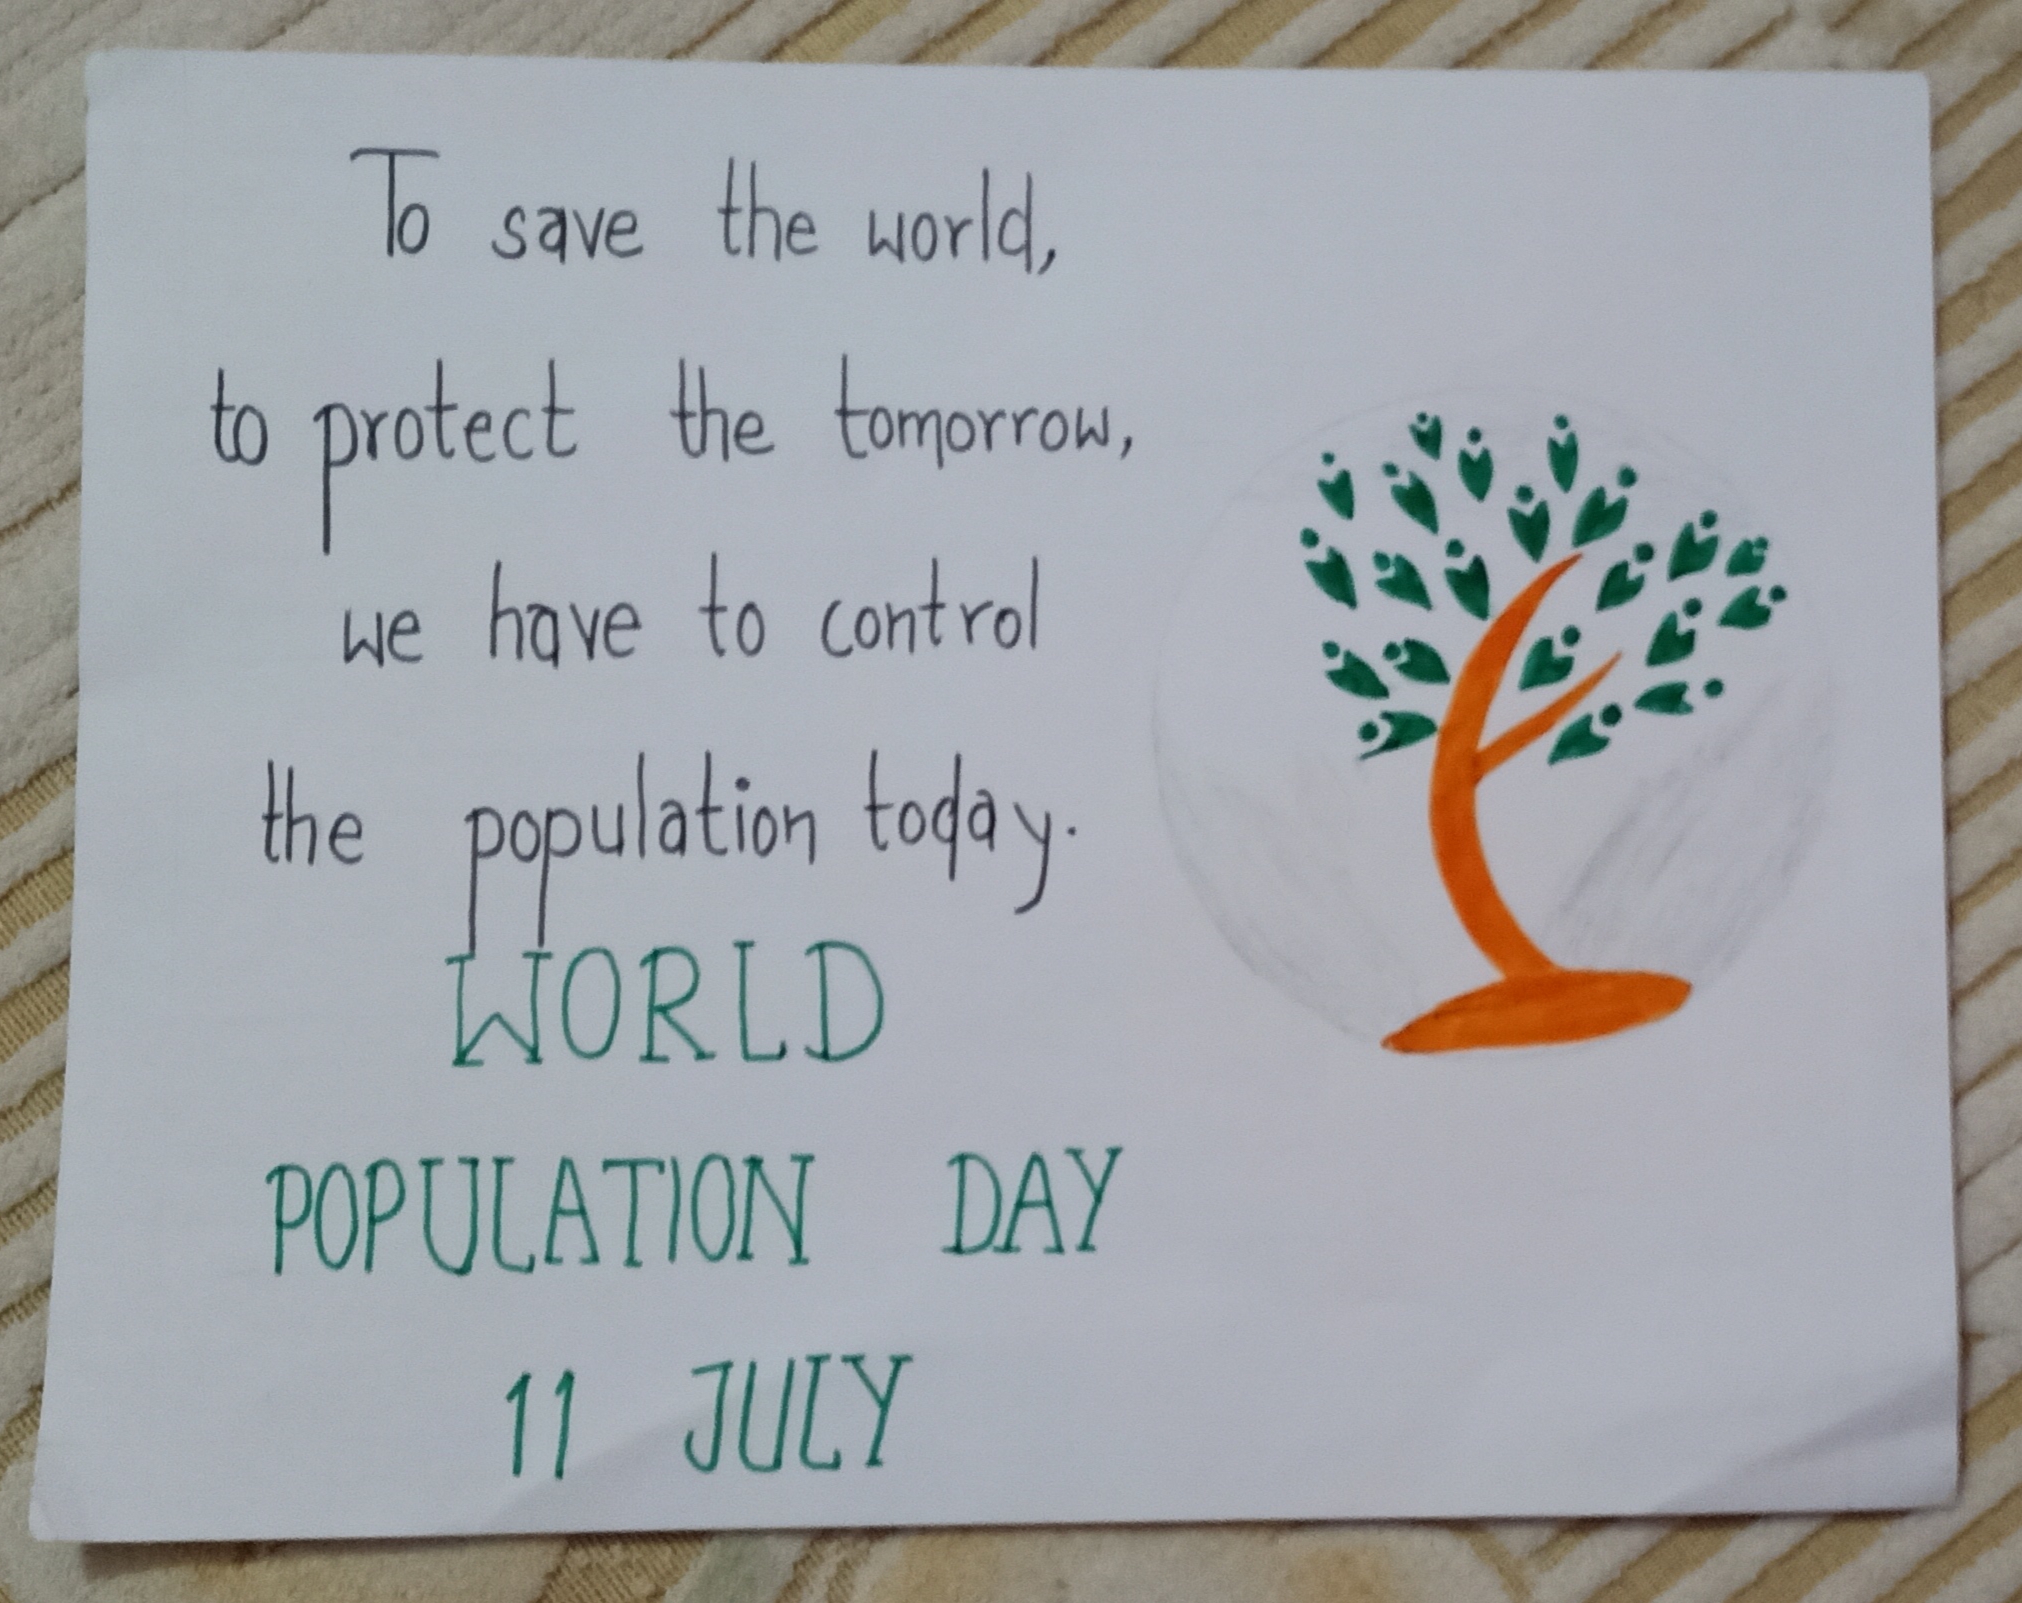 To save the world,
to protect the tomorrow,
we have to control
the population today.
WORLD
POPULATION DAY
11 JULY